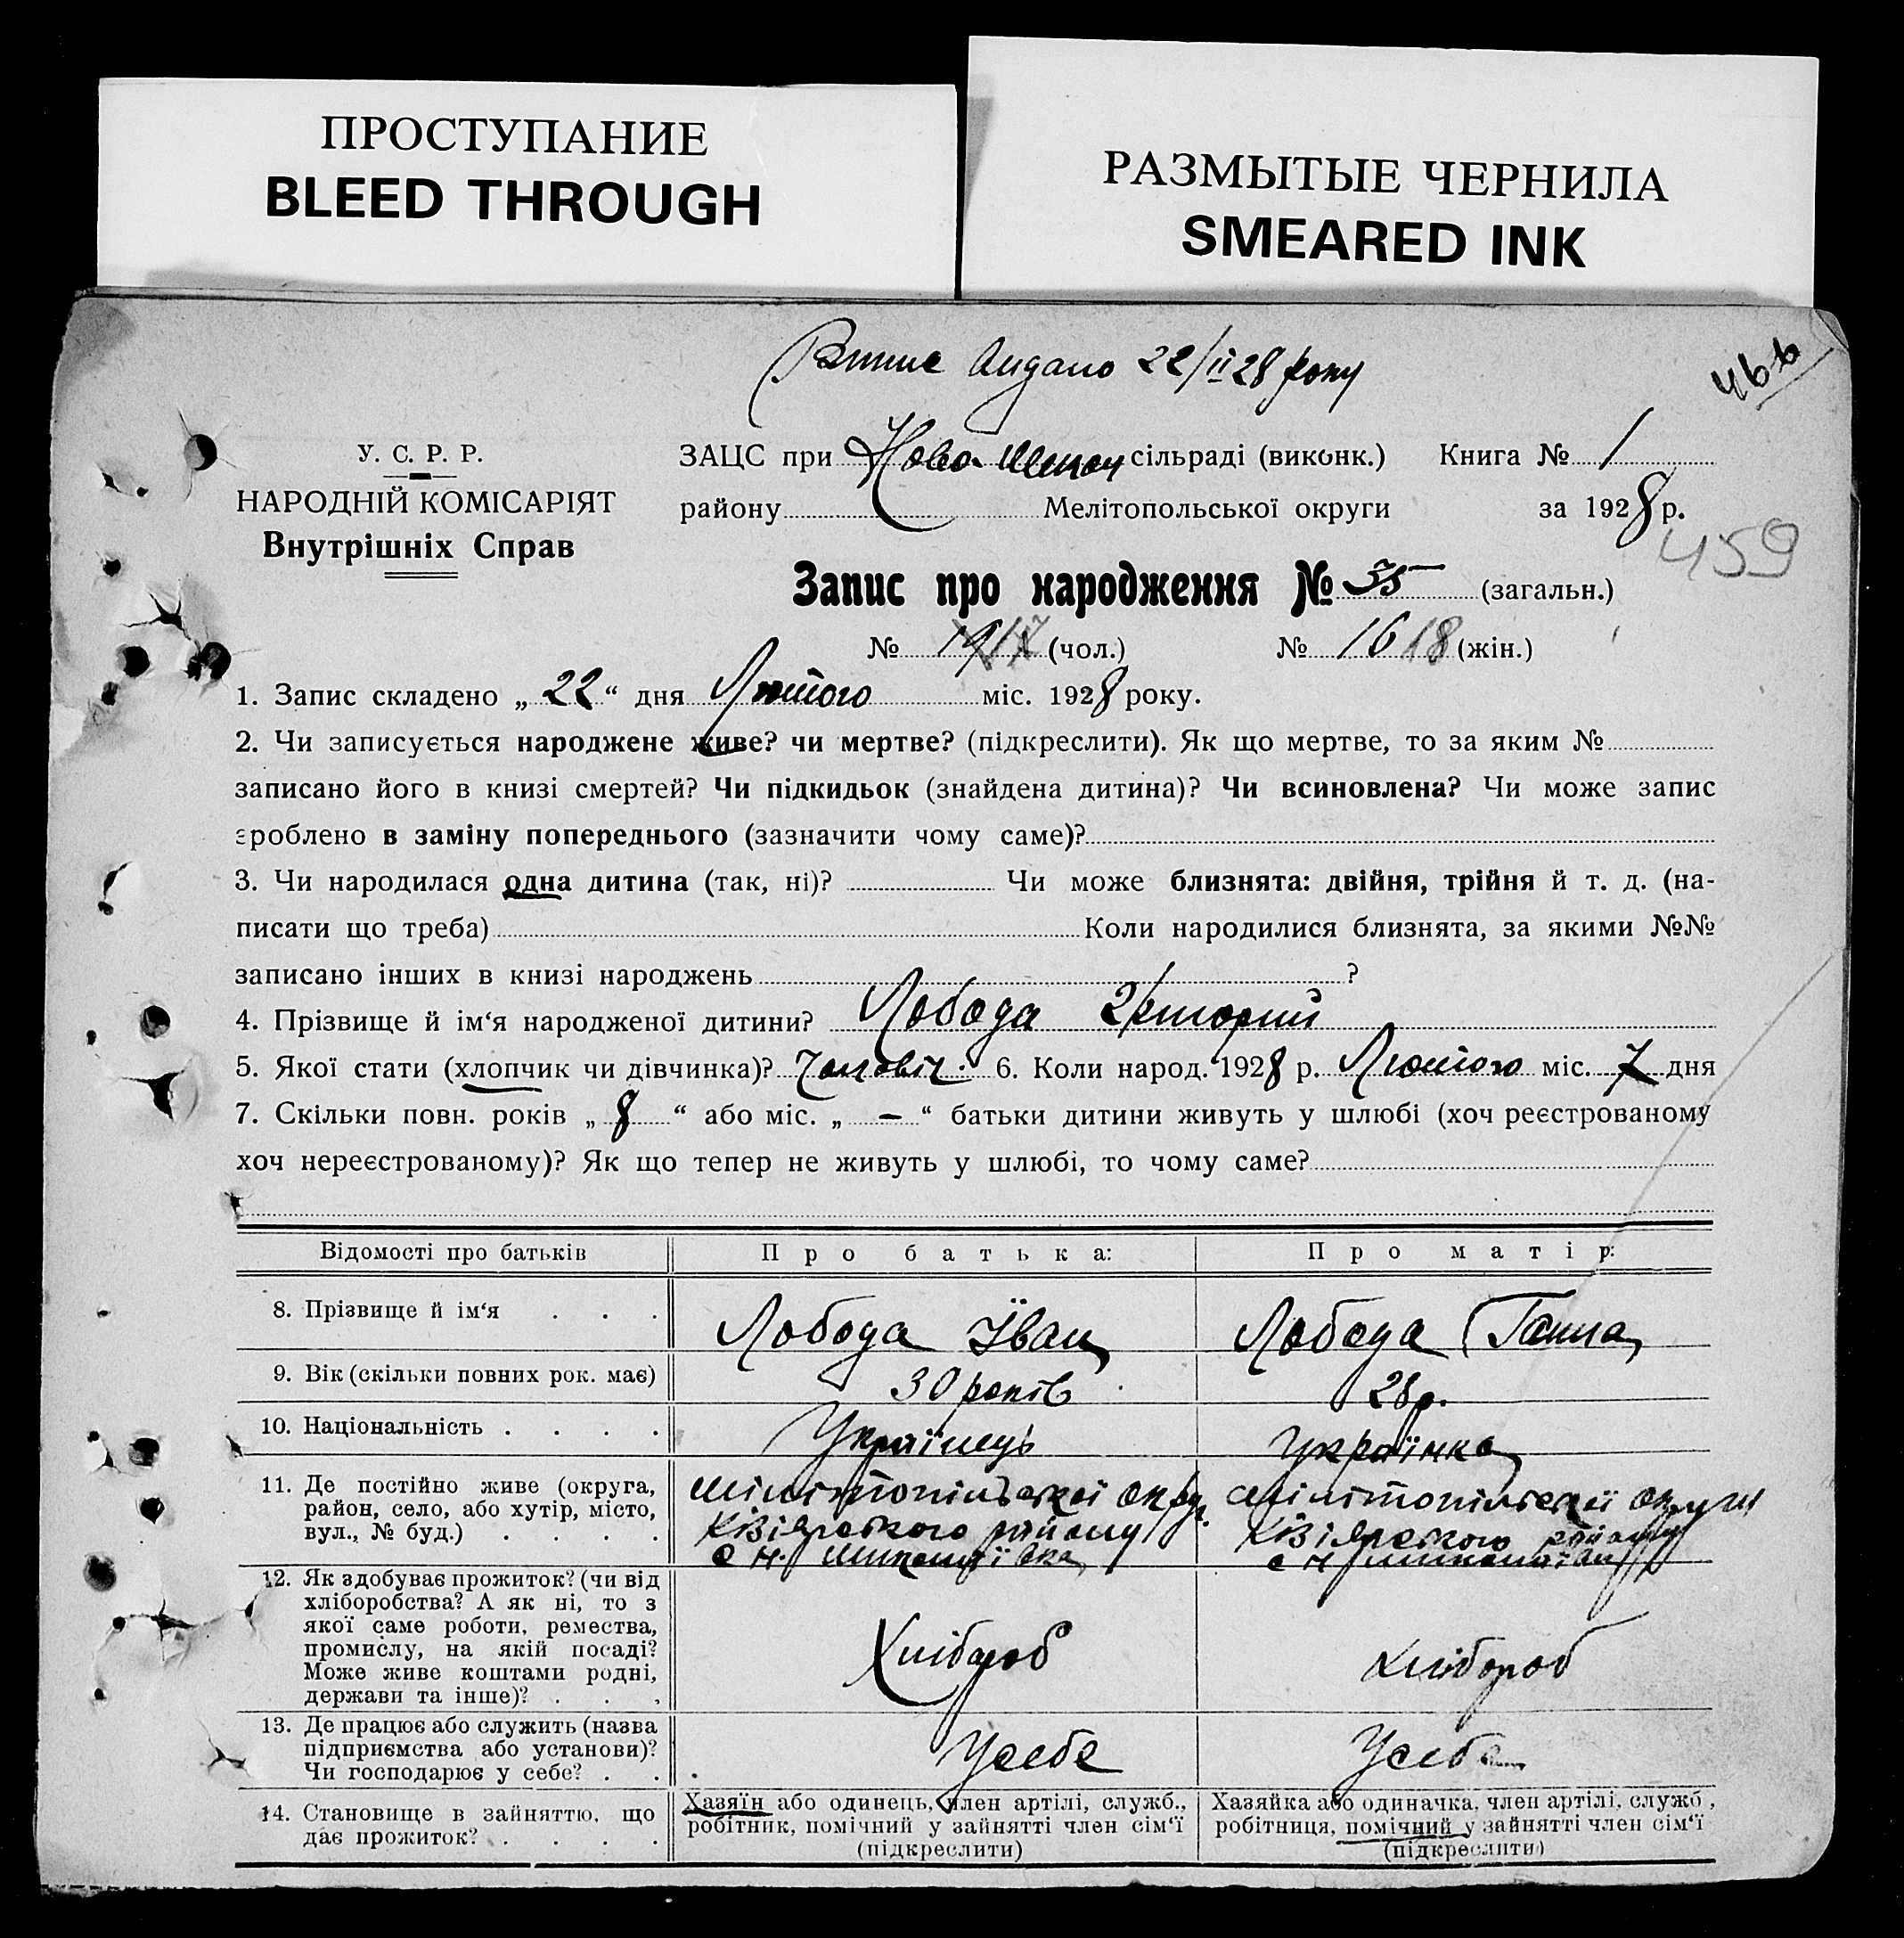 ПРОСТУПАНИЕ
BLEED THROUGH
РАЗМЫТЫЕ ЧЕРНИЛА
SMEARED INK
видано 22/II 28 року
466
У. С. Р. Р.
НАРОДНІЙ КОМІСАРІЯТ
Внутрішніх Справ
ЗАЦС при Ново сільраді (виконк.) Книга № 1
району Мелітопольської округи за 1928 р.
459
Запис про народження № 35 (загальн.)
№ 19 17 (чол.) № 16 18 (жін.)
1. Запис складено „ 22 “ дня Лютого міс. 1928 року.
2. Чи записується народжене живе? чи мертве? (підкреслити). Як що мертве, то за яким №
записано його в книзі смертей? Чи підкидьок (знайдена дитина)? Чи всиновлена? Чи може запис
зроблено в заміну попереднього (зазначити чому саме)?
3. Чи народилася одна дитина (так, ні)? Чи може близнята: двійня, трійня й т. д. (на-
писати що треба) Коли народилися близнята, за якими №№
записано інших в книзі народжень ?
4. Прізвище й ім‘я народженої дитини? Лобода
5. Якої стати (хлопчик чи дівчинка)? Чоловіч. 6. Коли народ. 1928 р. Лютого міс. 7 дня
7. Скільки повн. років „ 8 “ або міс. „ — “ батьки дитини живуть у шлюбі (хоч реєстрованому
хоч нереєстрованому)? Як що тепер не живуть у шлюбі, то чому саме?
Відомості про батьків Про батька: Про матір:
8. Прізвище й ім‘я . . . Лобода Іван Лобода Ганна
9. Вік (скільки повних рок. має) 30 років 28 р.
10. Національність . . . . Українець Українка
11. Де постійно живе (округа,
район, село, або хутір, місто,
вул., № буд.) . . . .
Мілітопільської округ.
Кізіярського району
с Н. Миколаївка
Мілітопільської округи
Кізіярського району
с Н Миколаївка
12. Як здобуває прожиток? (чи від
хліборобства? А як ні, то з
якої саме роботи, ремества,
промислу, на якій посаді?
Може живе коштами родні,
держави та інше)? . . .
Хлібороб Хлібороб
13. Де працює або служить (назва
підприємства або установи)?
Чи господарює у себе? . .
Усебе Усебе
14. Становище в зайняттю, що
дає прожиток? . . . .
Хазяїн або одинець, член артілі, служб.,
робітник, помічний у зайнятті член сім‘ї
(підкреслити)
Хазяйка або одиначка, член артілі, служб.,
робітниця, помічний у зайнятті член сім‘ї
(підкреслити)